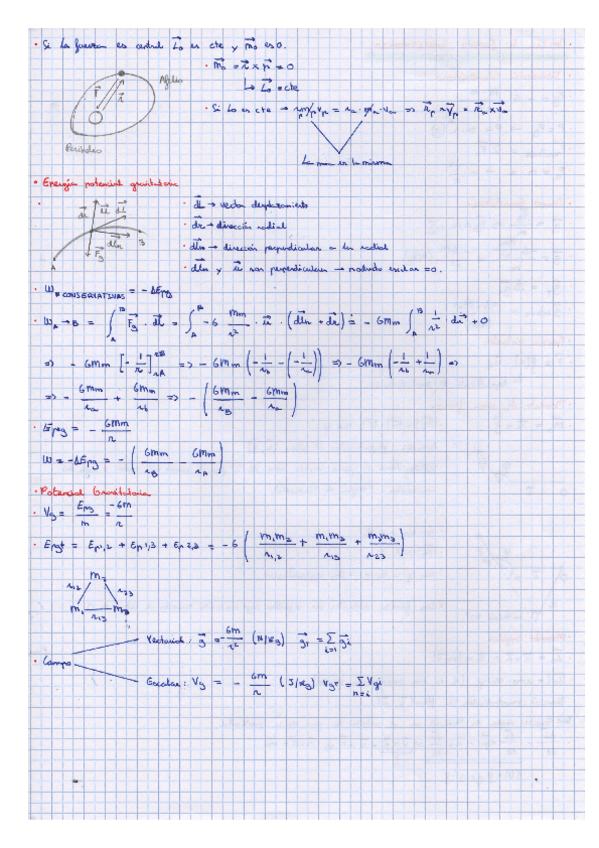 · Si la fuerza es central L₀ es cte y m₀ es 0.
· m₀ = r x p = 0
↳ L₀ = cte
Afelio
F r
Perihelio
· Si L₀ es cte → r_p · m · v_p = r_a · m · v_a => r_p x v_p = r_a x v_a
La masa es la misma
· Energía potencial gravitatoria
· dl → vector desplazamiento
· dr → dirección radial
· dl_n → dirección perpendicular a la radial
· dl_n y u son perpendiculares → producto escalar = 0.
dr u dl
dl_n
F_g
A B
· W_F CONSERVATIVAS = -ΔE_pg
· W_A→B = ∫_A^B F_g · dl = ∫_A^B -G Mm/r² · u · (dl_n + dr) = -GMm ∫_A^B 1/r² · dr + 0
=> -GMm [-1/r]_rA^rB => -GMm (-1/r_b - (-1/r_a)) => -GMm (-1/r_b + 1/r_a) =>
=> -GMm/r_a + GMm/r_b => -(GMm/r_B - GMm/r_A)
· E_pg = -GMm/r
W = -ΔE_pg = -(GMm/r_B - GMm/r_A)
· Potencial Gravitatorio
· V_g = E_pg/m = -GM/r
· E_pgt = E_p1,2 + E_p1,3 + E_p2,3 = -G (m₁m₂/r_1,2 + m₁m₃/r_13 + m₂m₃/r_23)
m₂
r_12 r_23
m₁ r_13 m₃
Vectorial: g = -GM/r² (N/kg) g_T = Σ_i=1 g_i
· Campo
Escalar: V_g = -GM/r (J/kg) V_gT = Σ_n=i V_gi